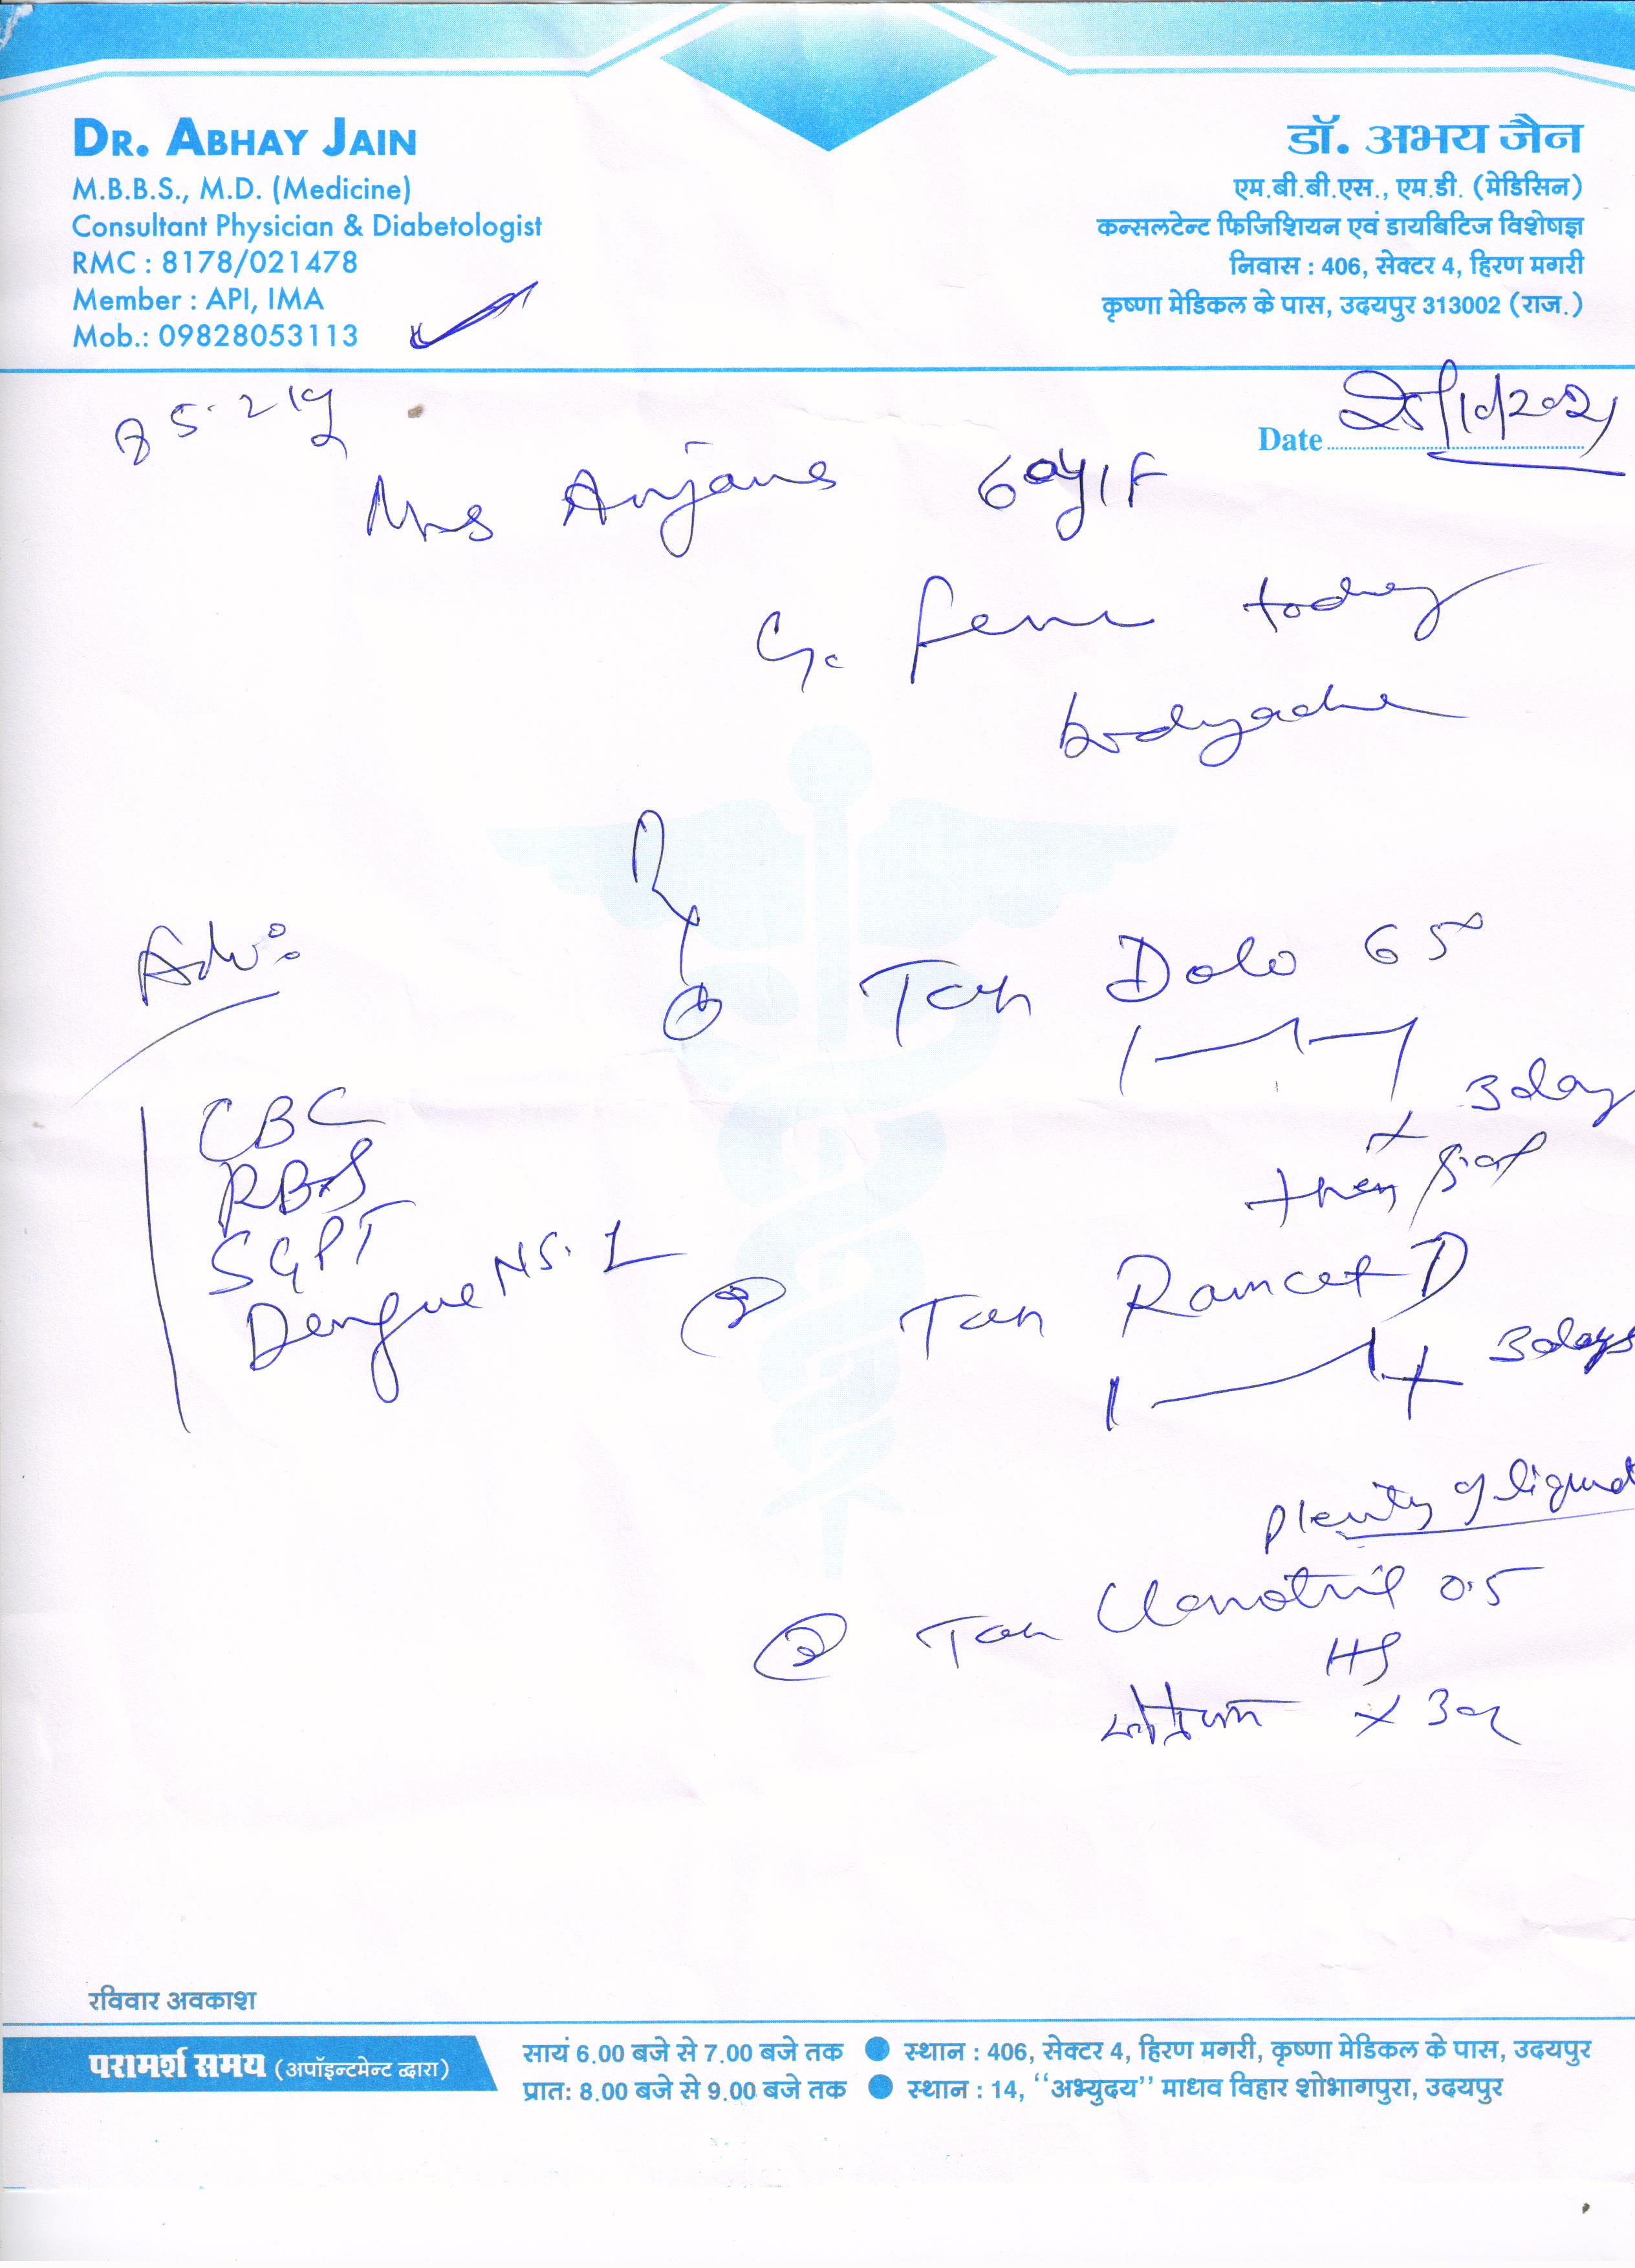 DR. ABHAY JAIN
M.B.B.S., M.D. (Medicine)
Consultant Physician & Diabetologist
RMC : 8178/021478
Member : API, IMA
Mob.: 09828053113
डॉ. अभय जैन
एम.बी.बी.एस., एम.डी. (मेडिसिन)
कन्सलटेन्ट फिजिशियन एवं डायबिटिज विशेषज्ञ
निवास : 406, सेक्टर 4, हिरण मगरी
कृष्णा मेडिकल के पास, उदयपुर 313002 (राज.)
Date 25/10/2021
Mrs 60y/F
today
bodyache
Rx
① Tab Dolo 650
1-1-1
x 3 day
then
Adv:
CBC
RBS
SGPT
Dengue NS.1
② Tab D
1-1 x 3days
plenty of liquid
③ Tab 0.5
HS
x 3
रविवार अवकाश
परामर्श समय (अपॉइन्टमेन्ट द्वारा)
सायं 6.00 बजे से 7.00 बजे तक ● स्थान : 406, सेक्टर 4, हिरण मगरी, कृष्णा मेडिकल के पास, उदयपुर
प्रात: 8.00 बजे से 9.00 बजे तक ● स्थान : 14, ‘‘अभ्युदय’’ माधव विहार शोभागपुरा, उदयपुर